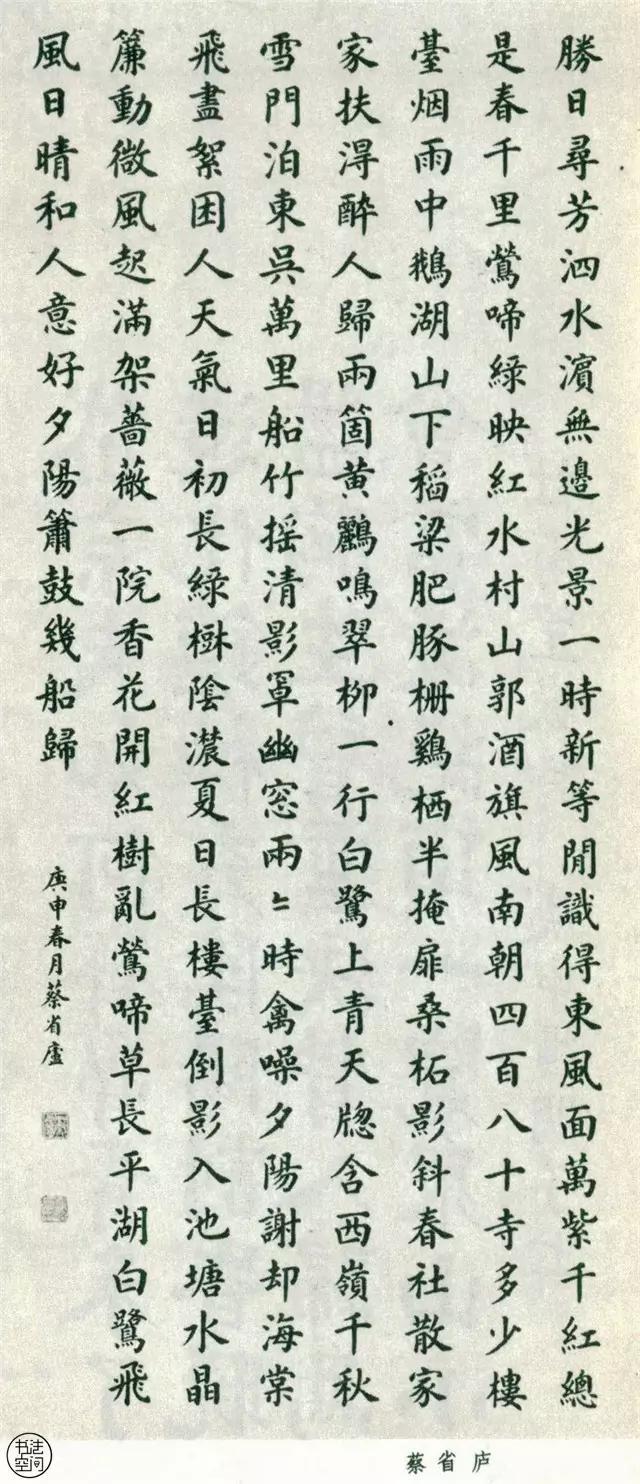 勝日尋芳泗水濱無邊光景一時新等閒識得東風面萬紫千紅總
是春千里鶯啼綠映紅水村山郭酒旗風南朝四百八十寺多少樓
臺烟雨中鵝湖山下稻粱肥豚柵鷄栖半掩扉桑柘影斜春社散家
家扶淂醉人歸兩箇黄鸝鳴翠柳一行白鷺上青天牕含西嶺千秋
雪門泊東吳萬里船竹摇清影罩幽窓兩〻時禽噪夕陽謝却海棠
飛盡絮困人天氣日初長綠樹陰濃夏日長樓臺倒影入池塘水晶
簾動微風起滿架薔薇一院香花開紅樹亂鶯啼草長平湖白鷺飛
風日晴和人意好夕陽簫鼓幾船歸
庚申春月蔡省廬
蔡省庐
书法
空间